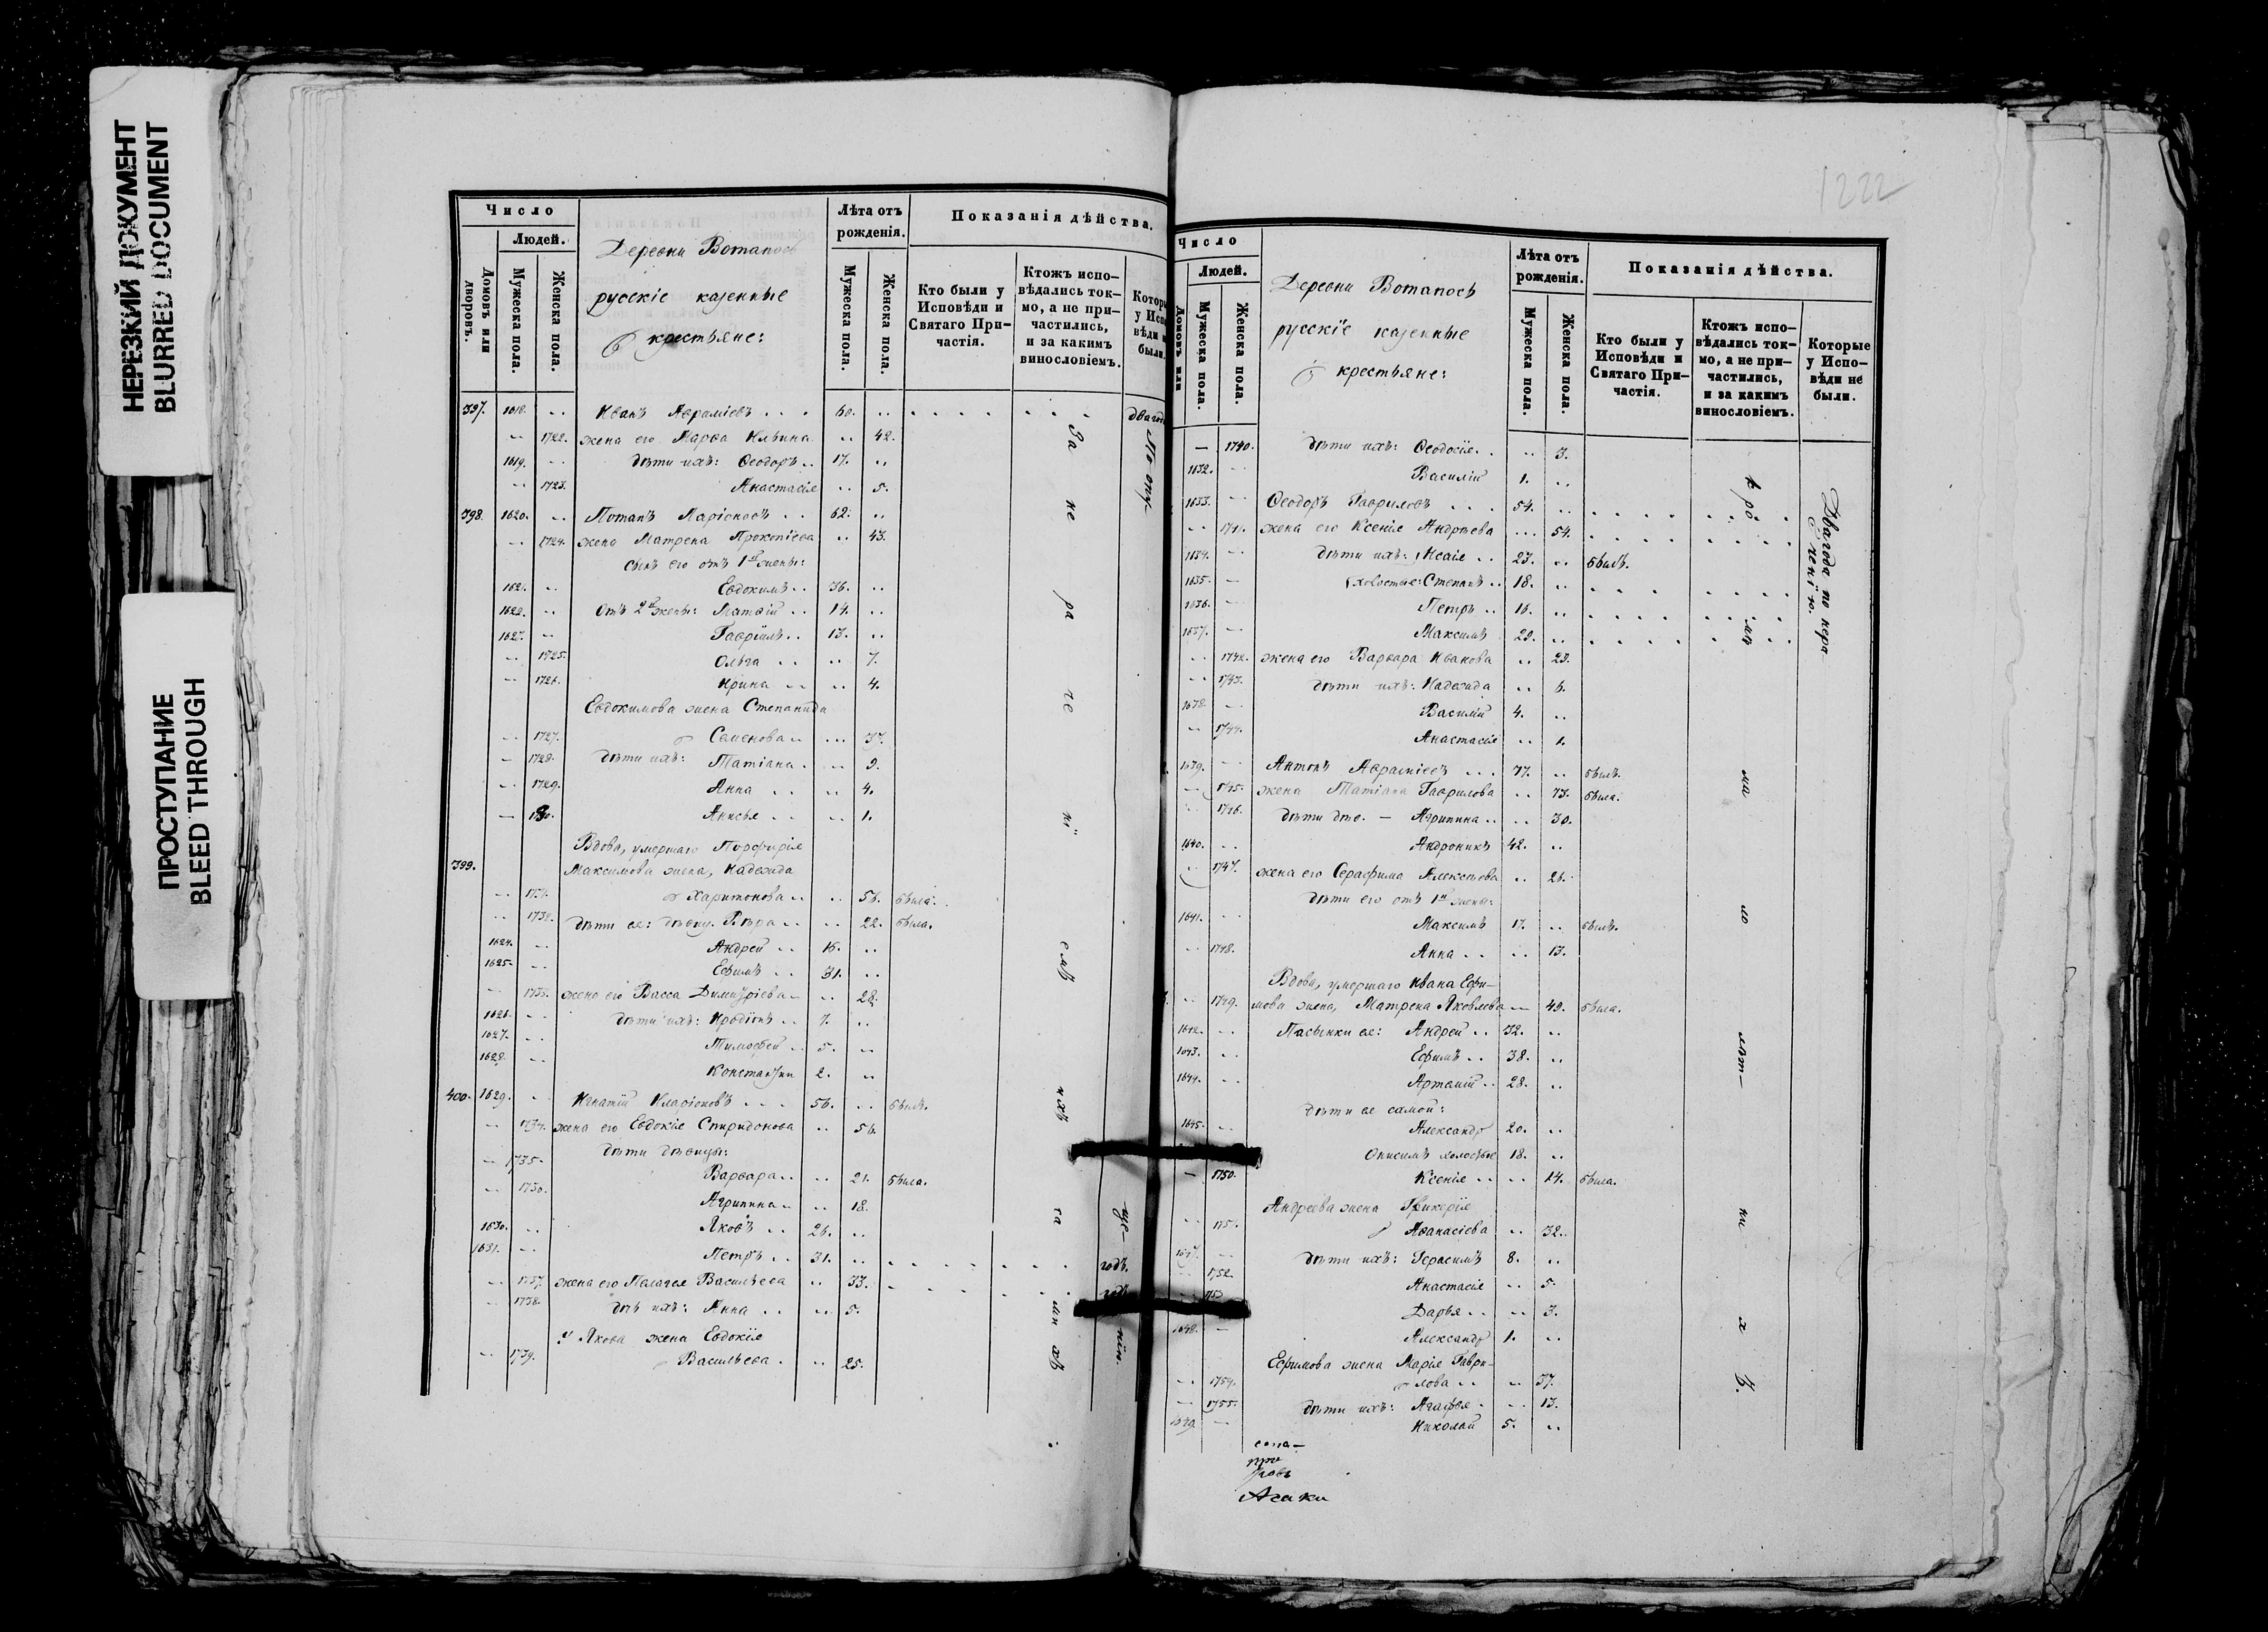 НЕРЕЗКИЙ ДОКУМЕНТ
BLURRED DOCUMENT
ПРОСТУПАНИЕ
BLEED THROUGH
Число
Людей.
Домовъ или дворовъ.
Мужеска пола.
Женска пола.
Деревни Вотапось
русскіе казенные
крестьяне:
Лѣта отъ рожденія.
Мужеска пола.
Женска пола.
Показанія дѣйства.
Кто были у Исповѣди и Святаго При-частія.
Ктожъ испо-вѣдались ток-мо, а не при-частились, и за какимъ винословіемъ.
397. 1618. .. Иванъ Авраміевъ . . . 60. ..
.. 1722. жена его Марѳа Ильина .. 42.
1619. .. дѣти ихъ: Ѳеодоръ .. 17. ..
.. 1723. Анастасія .. 5.
398. 1620. .. Потапъ Ларіоновъ . . 62. ..
.. 1724. жена Матрена Прокопіева .. 43.
сынъ его отъ 1й жены:
1621. .. Евдокимъ .. 36. ..
1622. .. Отъ 2й жены: Матѳій .. 14. ..
1623. .. Гавріилъ .. 13. ..
.. 1725. Ольга . . .. 7.
.. 1726. Ирина .. .. 4.
Евдокимова жена Степанида
.. 1727. Семенова .. ... 37.
— 1728. дѣти ихъ: Татіана . .. 9.
.. 1729. Анна . . .. 4.
— 1730. Анисья . . .. 1.
Вдова, умершаго Порфирія
399. Максимова жена, Надежда
.. 1731. Харитонова .. .. 56. была.
.. 1732. дѣти ея: дѣвиц. Вѣра .. .. 22. была.
1624. .. Андрей .. 16. ..
1625. .. Ефимъ . . 31. ..
.. 1733. жена его Васса Димитріева .. 28.
1626. .. дѣти ихъ: Иродіонъ .. 7. ..
1627. .. Тимоѳей .. 5. ..
1628. .. Константин 2. ..
400. 1629. .. Игнатій Иларіоновъ . . . 56. .. былъ.
.. 1734. жена его Евдокія Спиридонова .. 56.
дѣти дѣвицы:
— 1735. Варвара .. .. 21. была.
.. 1736. Агрипина .. .. 18.
1630. .. Яковъ .. 26. ..
1631. .. Петръ .. 31. ..
.. 1737. жена его Пелагея Васильева .. 33.
.. 1738. дѣт ихъ: Анна . . .. 5.
у Якова жена Евдокія
.. 1739. Васильева . .. 25.
За не ра че ні емъ ихъ
1222
Число
Людей.
Мужеска пола.
Женска пола.
Деревни Вотапось
русскіе казенные
крестьяне:
Лѣта отъ рожденія.
Мужеска пола.
Женска пола.
Показанія дѣйства.
Кто были у Исповѣди и Святаго При-частія.
Ктожъ испо-вѣдались ток-мо, а не при-частились, и за какимъ винословіемъ.
Которые у Испо-вѣди не были.
— 1740. дѣти ихъ: Ѳеодосія . . .. 3.
1632. .. Василій 1. ..
1633. .. Ѳеодоръ Гавриловъ . . . 54. ..
.. 1741. жена его Ксенія Андреева ... 54.
1634. .. дѣти ихъ: Исаія .. 23. .. былъ.
1635. — холостые: Степанъ .. 18. ..
1636. .. Петръ .. 16. ..
1637. .. Максимъ 29. ..
.. 1742. жена его Варвара Иванова .. 23.
.. 1743. дѣти ихъ: Надежда .. 6.
1638. .. Василій 4. ..
.. 1744. Анастасія .. 1.
1639. .. Антонъ Авраміевъ . . . 77. .. былъ.
— 1745. жена Татіана Гаврилова .. 73. была.
.. 1746. дѣти дѣв. — Агрипина .. .. 30.
1640. .. Андроникъ 42. ..
.. 1747. жена его Серафима Алексѣева .. 26.
дѣти его отъ 1й жены:
1641. .. Максимъ 17. .. былъ.
.. 1748. Анна . . .. 13.
Вдова, умершаго Ивана Ефи-
.. 1749. мова жена, Матрена Яковлева .. 49. была.
1642. .. Пасынки ея: Андрей .. 32. ..
1643. .. Ефимъ .. 38. ..
1644. .. Артамій .. 28. ..
дѣти ея самой:
1645. .. Александр 20. ..
Онисимъ холостые 18. ..
— 1750. Ксенія .. .. 14. была.
Андреева жена Гликерія
.. 1751. Аѳанасіева .. 32.
1647. .. дѣти ихъ: Герасимъ 8. ..
.. 1752. Анастасія .. 5.
1753 Дарья .. .. 3.
1648. — Александр 1. ..
Ефимова жена Марія Гаври-
.. 1754. лова .. .. 37.
— 1755. дѣти ихъ: Агафья . .. 13.
1649 — Николай 5. ..
Два года по нера
ченію.